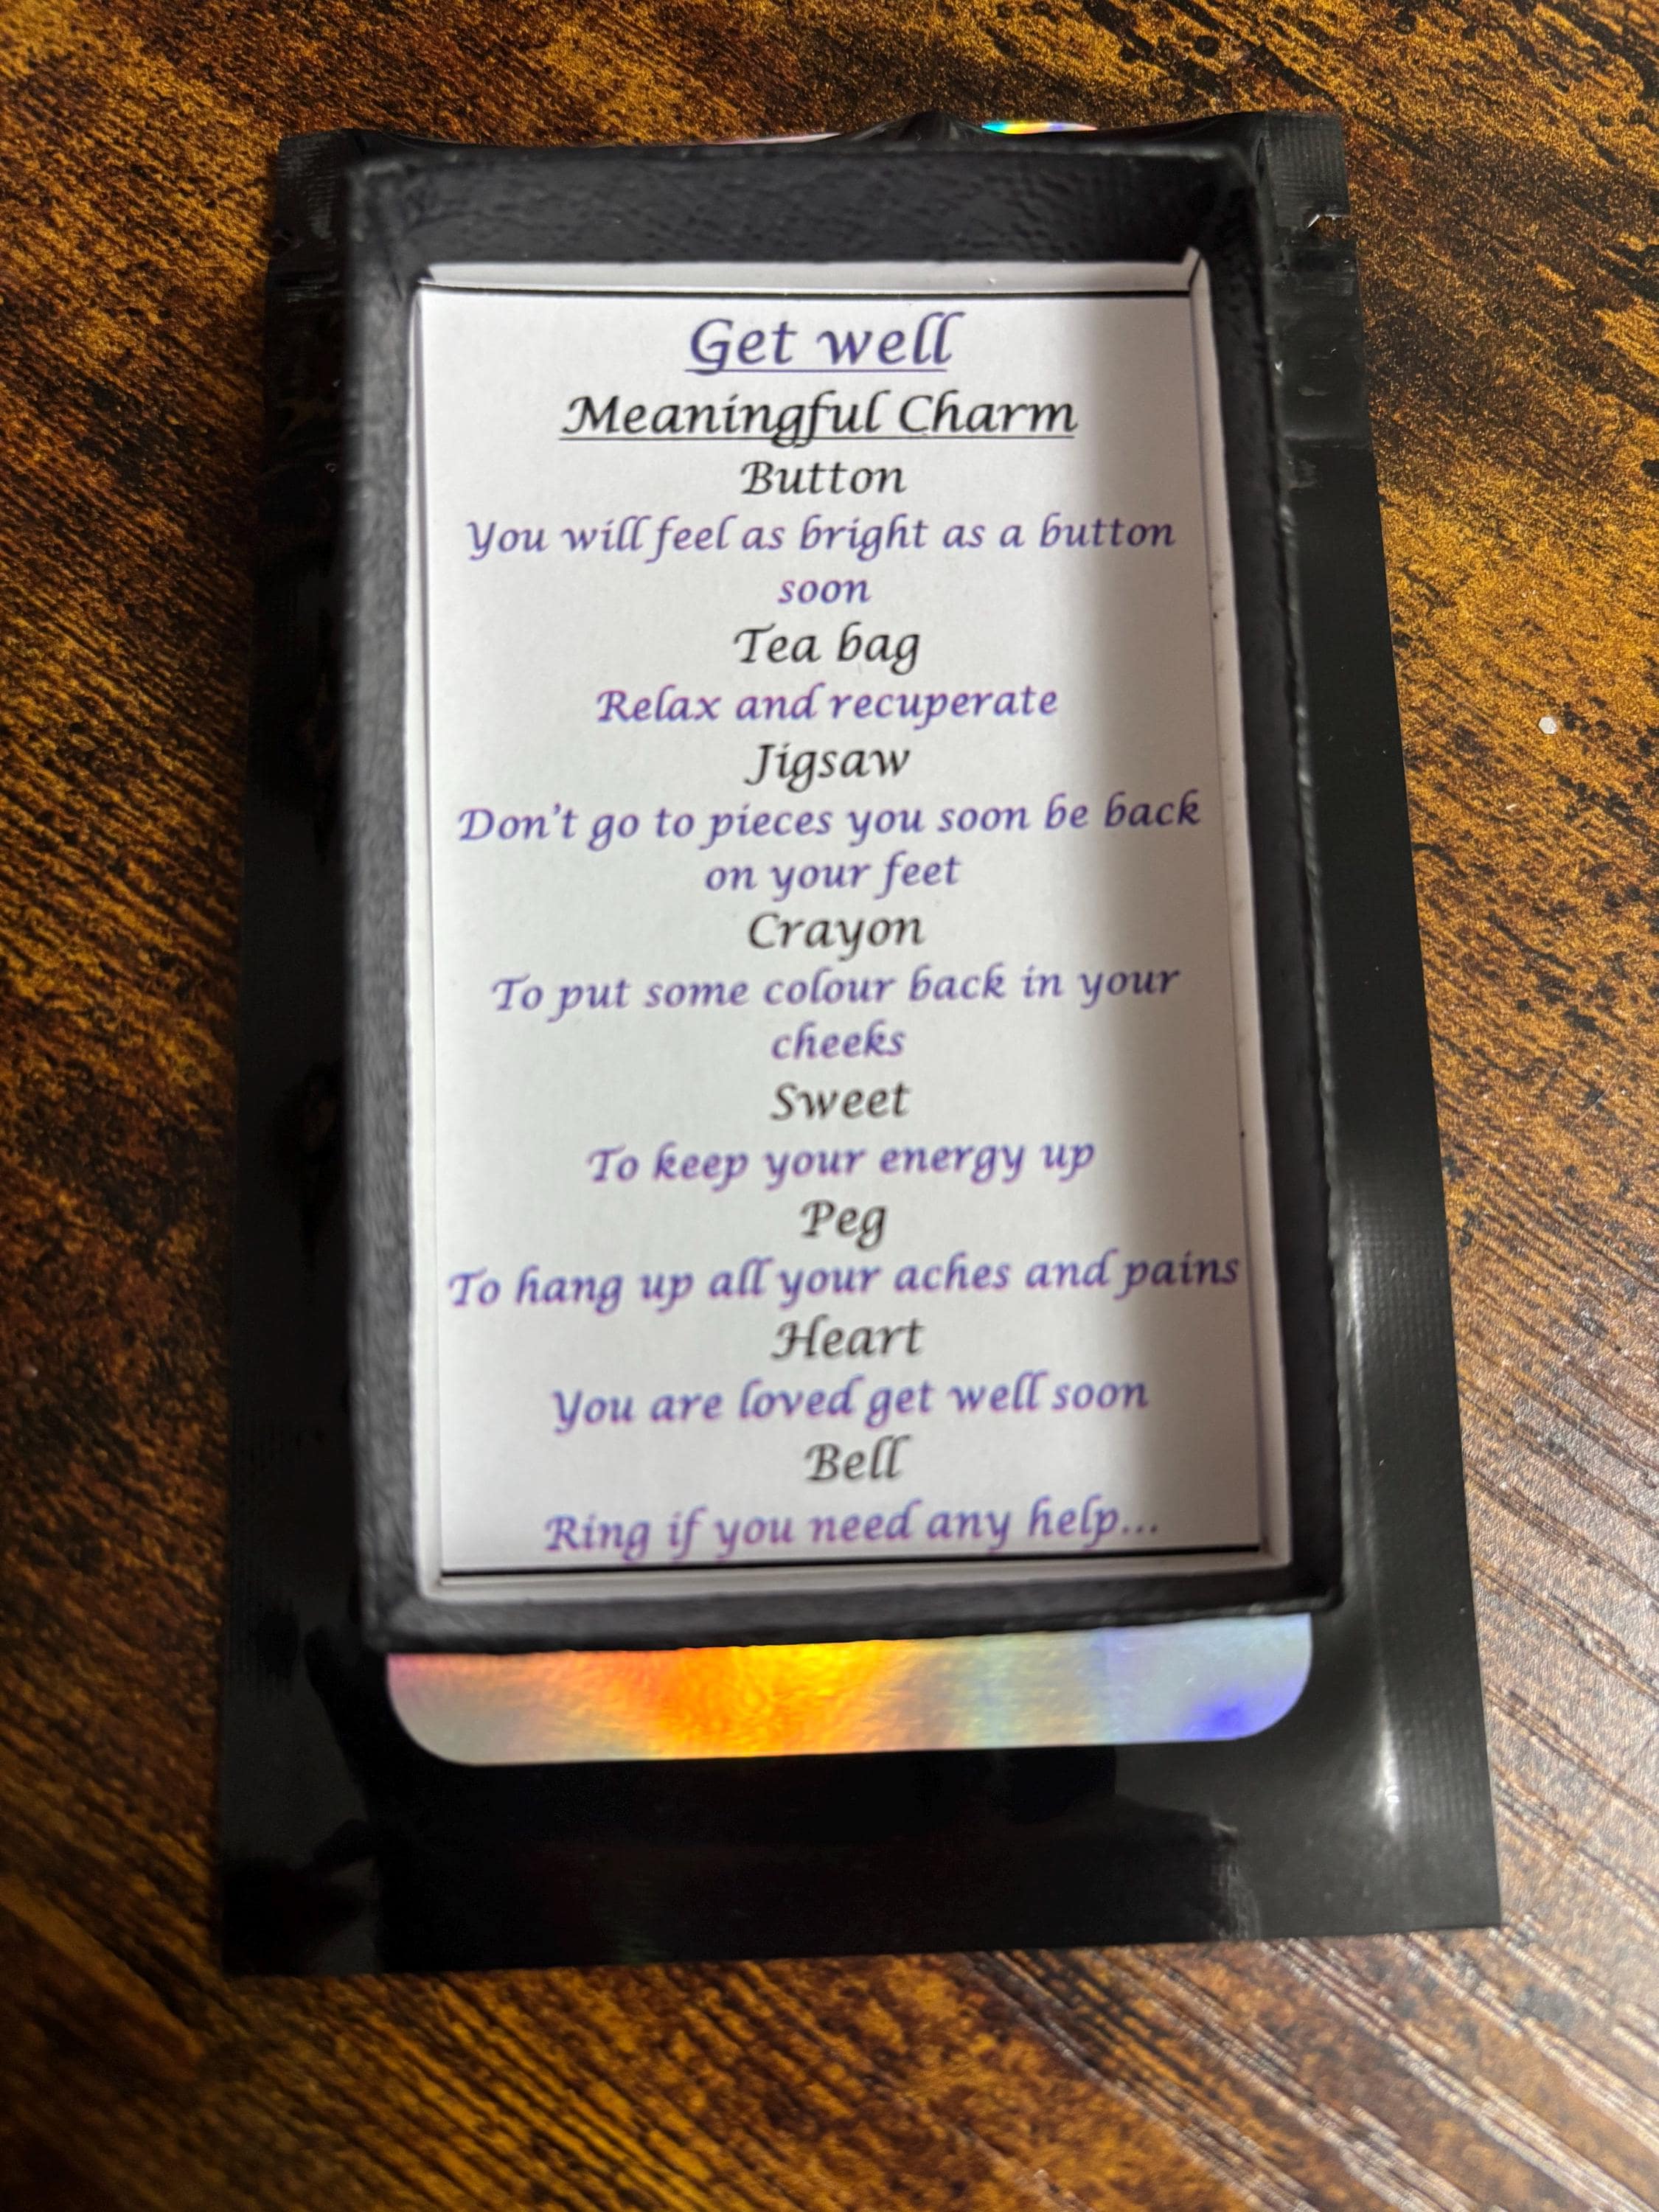 Get well
Meaningful Charm
Button
You will feel as bright as a button
soon
Tea bag
Relax and recuperate
Jigsaw
Don't go to pieces you soon be back
on your feet
Crayon
To put some colour back in your
cheeks
Sweet
To keep your energy up
Peg
To hang up all your aches and pains
Heart
You are loved get well soon
Bell
Ring if you need any help...